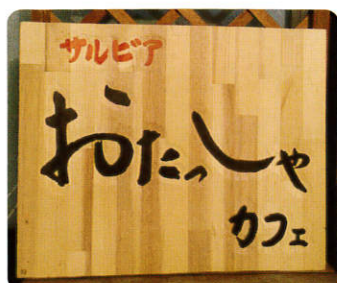 サルビア
おたっしゃ
カフェ